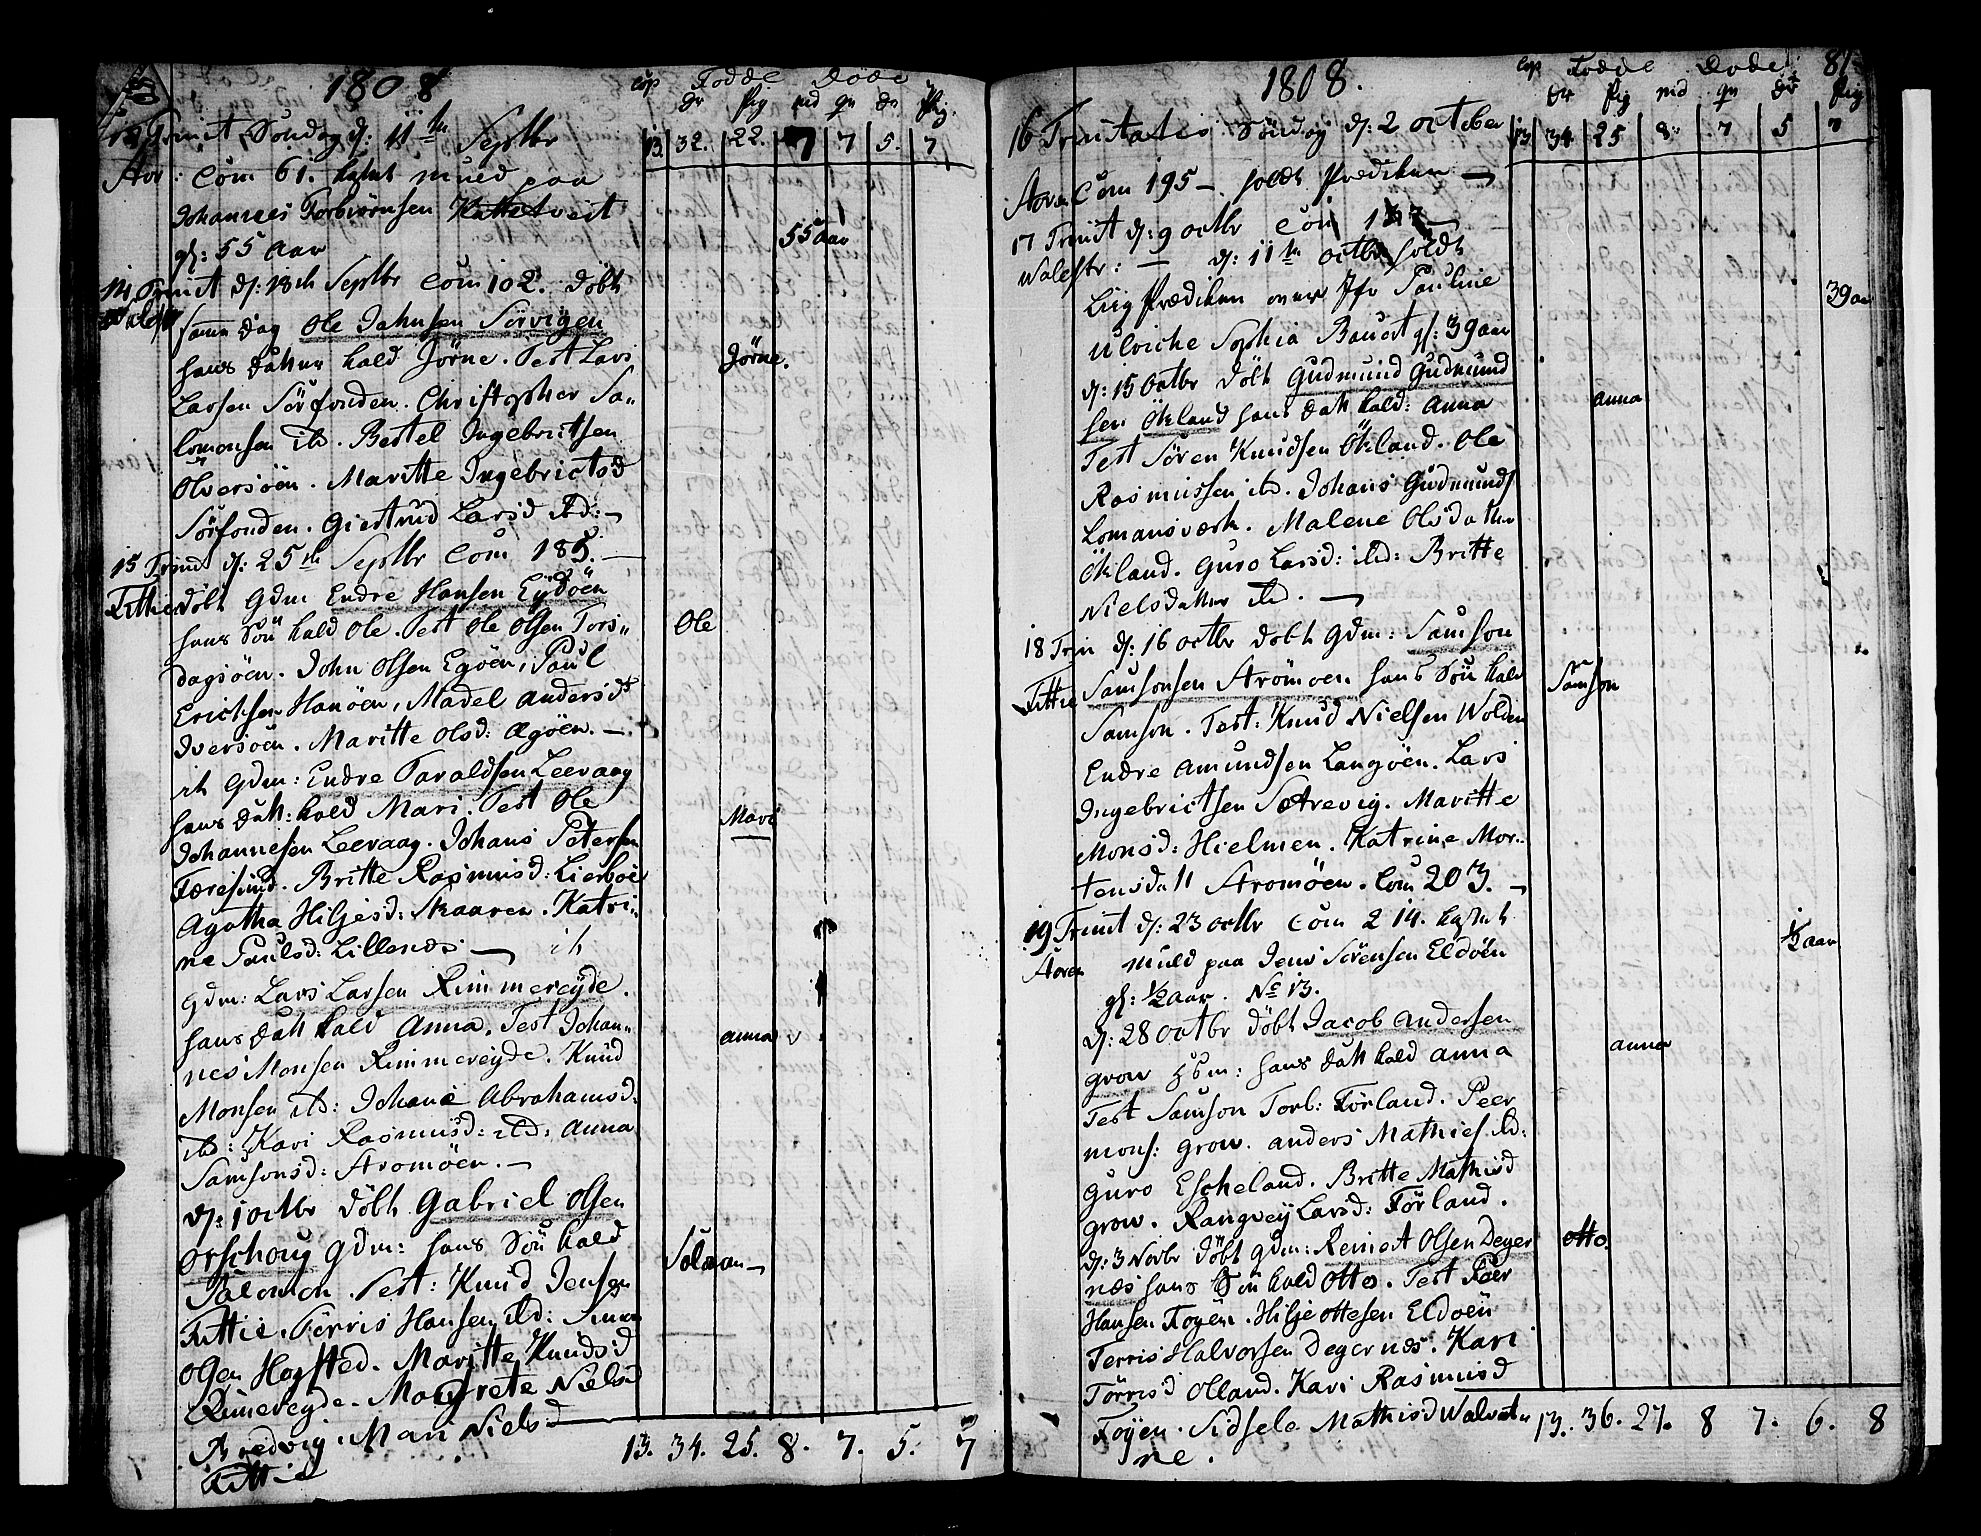 1808
cop Födde Döde
dr pig md qv dr Pig.
13. 32. 22. 7 7 5. 7
Trinit Söndag d: 11te Septbr
Com 61. kastet muld paa
Johannes Torbiörnsen Kattetveit
gl: 55 aar
55 aar
14 Trinit d: 18de Septbr Com 102. döbt
samme dag Ole Jahnsen Sörvigen
hans datter kald Jörne. Test Lars
Jörne.
Larsen Sörfonden. Christopher Sa„
lomonsen ibd. Bertel Ingebritsen
Olversöen. Maritte Ingebrictsd
Sörfonden. Giertrud Larsd ibd:
15 Trinit d: 25te Septbr Com 185.
Fittie döbt Gdm Endre Hansen Eydöen
hans Sön kald Ole. Test Ole Olsen Tors„
Ole
dagsöen. John Olsen Egöen, Paul
Ericksen Hanöen, Madel Andersd
Iversöen. Maritte Olsd: Ægöen.
it Gdm: Endre Taraldsen Leevaag
hans datt: kald Mari. Test Ole
Mari
Johannesen Leevaag. Johans Petersen
Færesund. Britte Rasmusd: Lierböe
Agatha Hiljesd: Skaaren. Katri„
ne Paulsd: Lillenæs it
Gdm: Lars Larsen Rimmereyde.
hans datt kald Anna. Test Johan„
anna
nes Monsen Rimmereyde. Knud
Monsen ibd: Johane Abrahamsd.
ibd: Kari Rasmusd: ibd: Anna
Samsonsd: Aromöen.
d: 1 octbr döbt Gabriel Olsen
Orschoug Gdm: hans Sön kald
Salomon
Salomon. Test: Knud Jensen
Fittie. Törris Hansen ibd: Simen
Olsen Hogsted. Maritte Knudsd
Rimereyde. Magrete Nielsd
Aredvig. Mari Nielsd
Fittie
13. 34. 25. 8. 7. 5. 7
1808. 81
cop Födde Döde
dr pig md qv dr pig
13 34 25 8 7 5 7
16 Trinitatis Söndag d: 2 October
Com 195 holdt Prædiken
17 Trinit d: 9 octbr Com
Walestr: d: 11te octbr holdt
Liig Prædiken over Jfr Pauline
Ulriche Sophia Bauert gl: 39 aar
39 aar
d: 15 Octbr döbt Gudmund Gudmund
sen Ökland hans datt kald: Anna
anna
Test Sören Knudsen Ökland. Ole
Rasmussen ibd. Johans Gudmunds
Lomansværk. Malene Olsdatter
Ökland. Guro Larsd: ibd: Britte
Nielsdatter ibd.
18 Trin d: 16 octbr döbt Gdm: Samson
Fittie Samsonsen Aromoen hans Sön kald
Samson
Samson. Test: Knud Nielsen Wolden
Endre Amundsen Langöen. Lars
Ingebrictsen Sætrevig. Maritte
Monsd: Hielmen. Katrine Mor„
tensdatt Aromöen. Com 203.
19 Trinit d: 23 octbr Com 214. kastet
muld paa Jens Sörensen Eldöen
½ aar
gl: ½ aar. No 13.
d: 28 octbr döbt Jacob Andersen
Grow Hbm: hans datt kald Anna
anna
Test Samson Torb: Förland. Peer
Mons: Grow. Anders Mathies ibd:
Guro Escheland. Britte Mathisd
Grow. Rangvey Larsd: Förland.
d: 3 Novbr döbt Gdm: Reinert Olsen Deger
Otto.
næs hans Sön kald Otto. Test Peer
Hansen Foyen. Hilje Ottesen Eldoen
Terris Halvorsen Degernæs. Kari
Törrisd Olland. Kari Rasmusd
Foyen. Sidsele Mathisd
ne.
13. 36. 27. 8 7. 6. 8